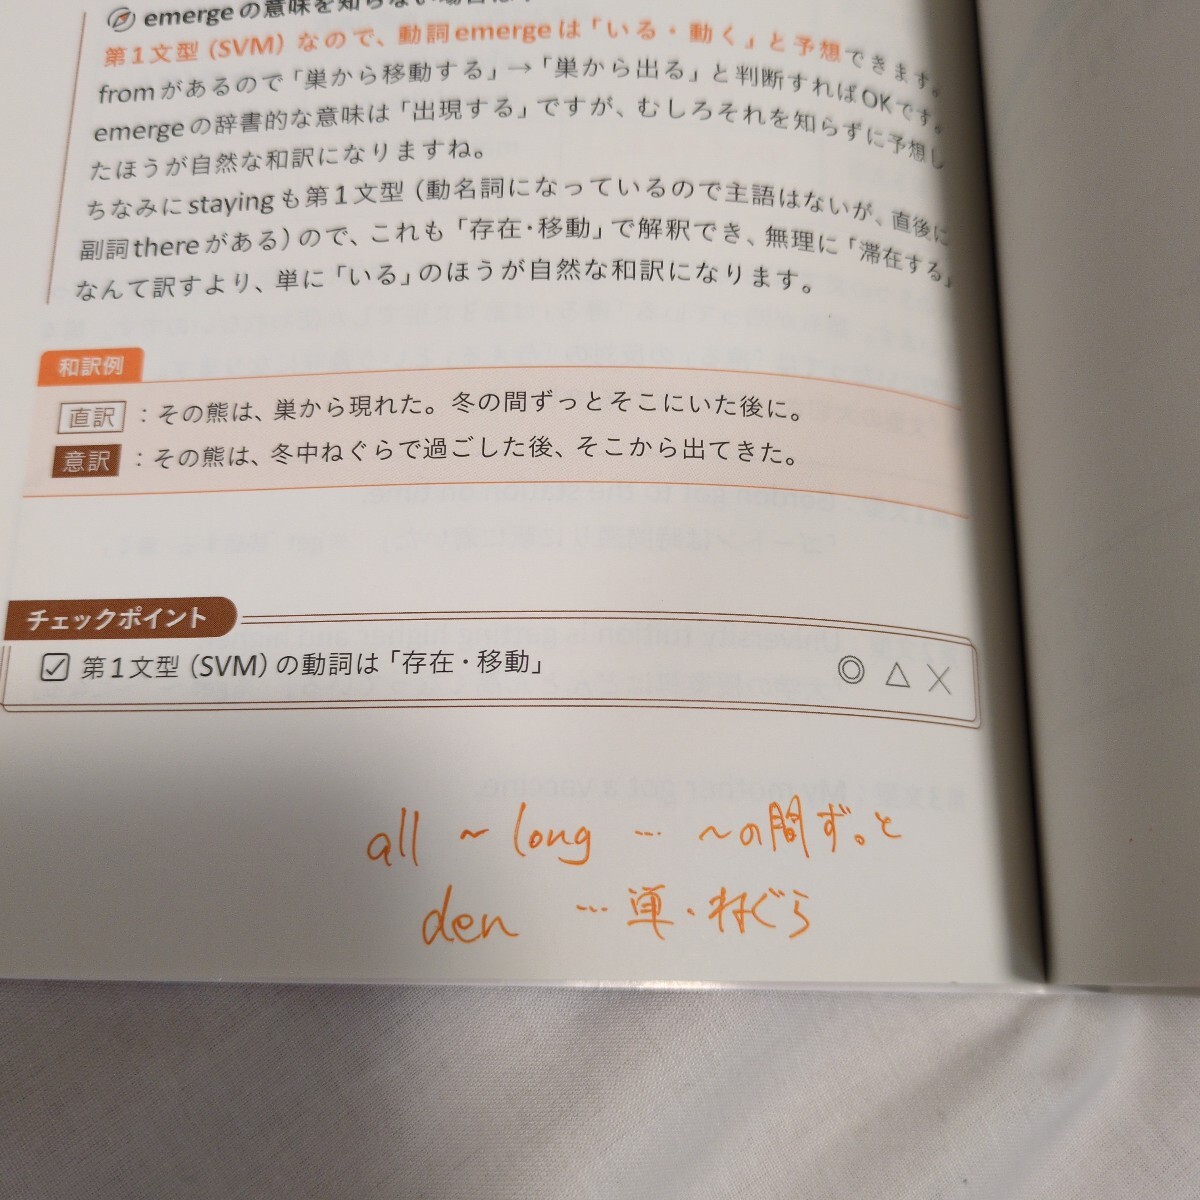 emergeの意味を知らない場合は、
第1文型（SVM）なので、動詞emergeは「いる・動く」と予想できます。
fromがあるので「巣から移動する」→「巣から出る」と判断すればOKです。
emergeの辞書的な意味は「出現する」ですが、むしろそれを知らずに予想し
たほうが自然な和訳になりますね。
ちなみにstayingも第1文型（動名詞になっているので主語はないが、直後に
副詞thereがある）ので、これも「存在・移動」で解釈でき、無理に「滞在する」
なんて訳すより、単に「いる」のほうが自然な和訳になります。
和訳例
直訳：その熊は、巣から現れた。冬の間ずっとそこにいた後に。
意訳：その熊は、冬中ねぐらで過ごした後、そこから出てきた。
チェックポイント
☑ 第1文型（SVM）の動詞は「存在・移動」 ◎ △ ×
all ～ long … ～の間ずっと
den … 巣・ねぐら